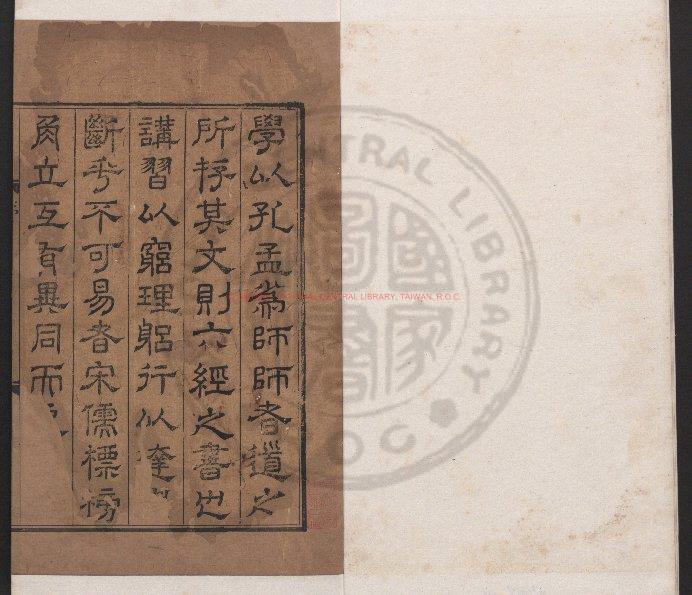 學以孔孟爲師師者道之
所存其文則六經之書也
講習以窮理躬行以達
斷乎不可易者宋儒標榜
角立互有異同而
CENTRAL LIBRARY, TAIWAN, R.O.C.
CENTRAL LIBRARY
ROC
國家圖書